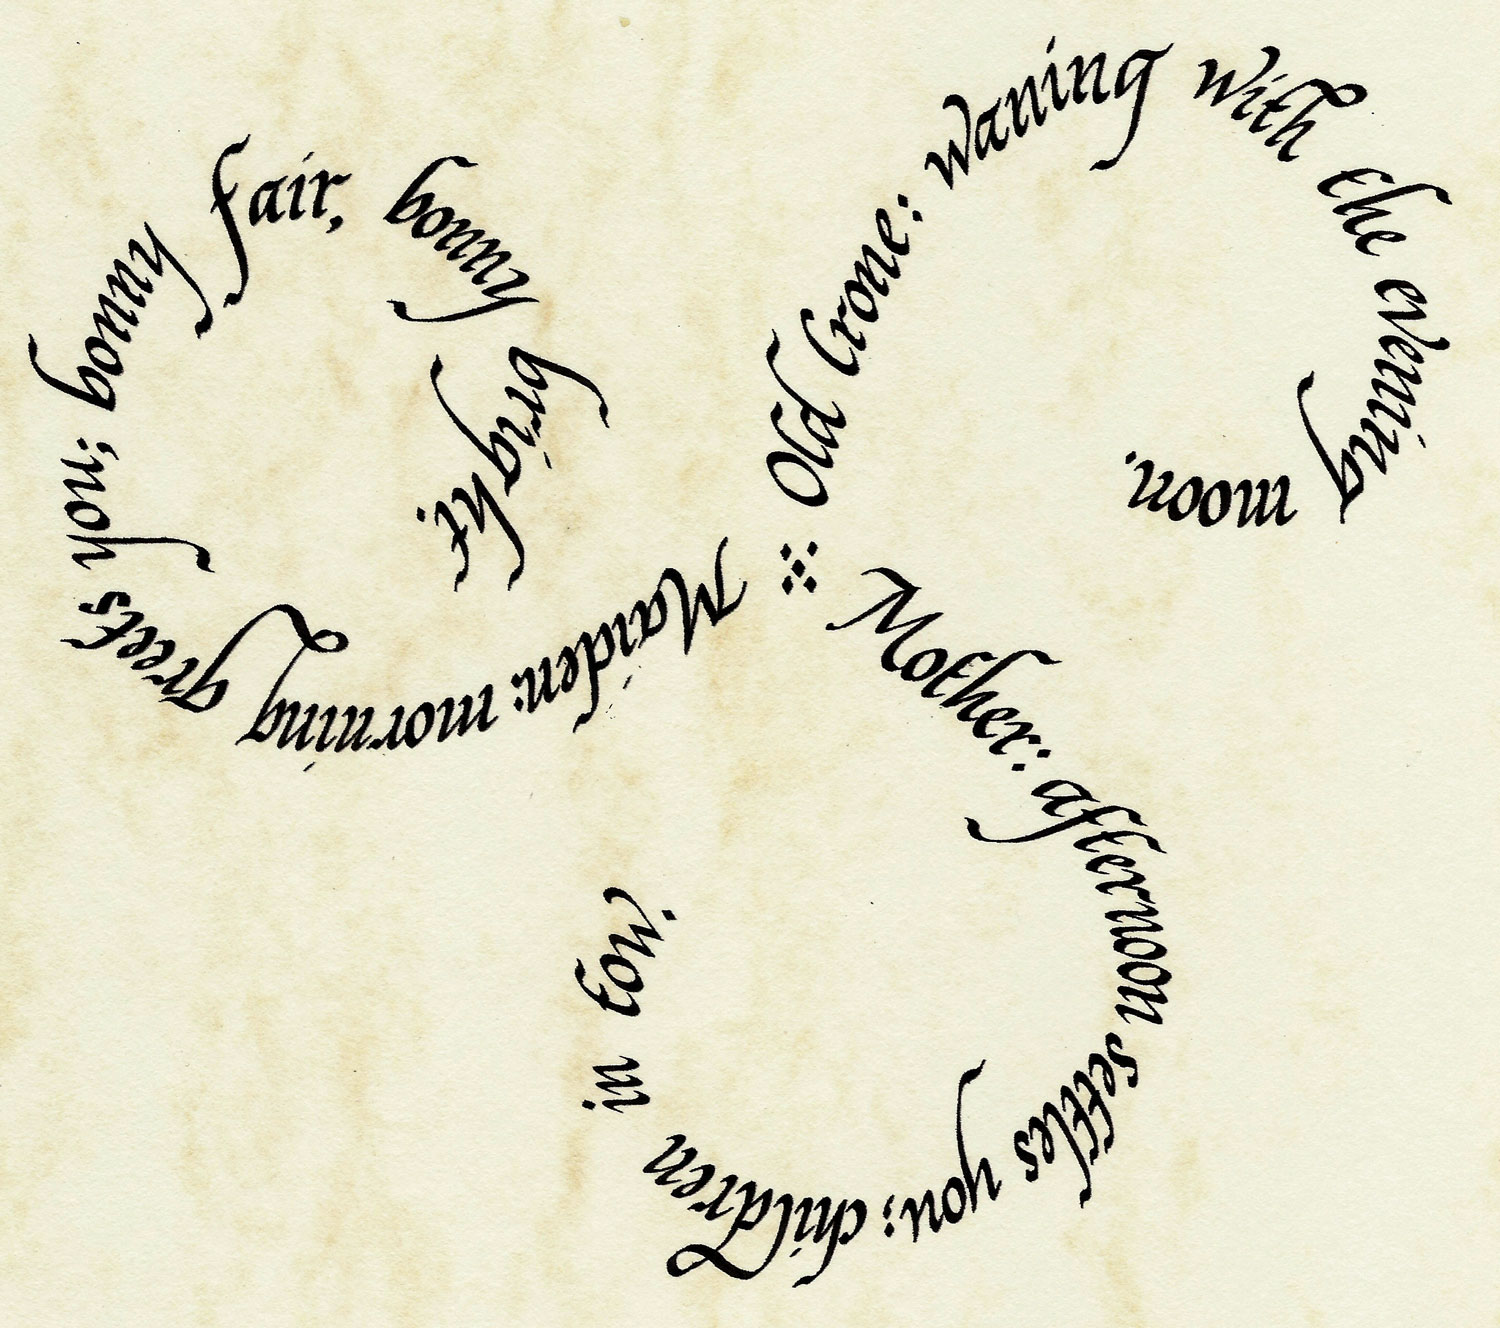 Maiden: morning greets you; bonny fair, bonny bright.
Mother: afternoon settles you; children in tow.
Old Crone: waning with the evening moon.